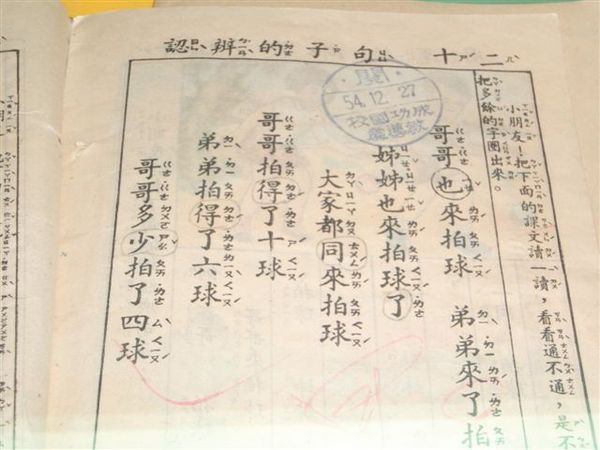 二十 句子的辨認
小朋友！把下面的課文讀一讀，看看通不通，是不
把多餘的字圈出來。
哥哥也來拍球 弟弟來了拍
姊姊也來拍球了
大家都同來拍球
哥哥拍得了十球
弟弟拍得了六球
哥哥多少拍了四球
閱
54.12.27
成功國校
教導處